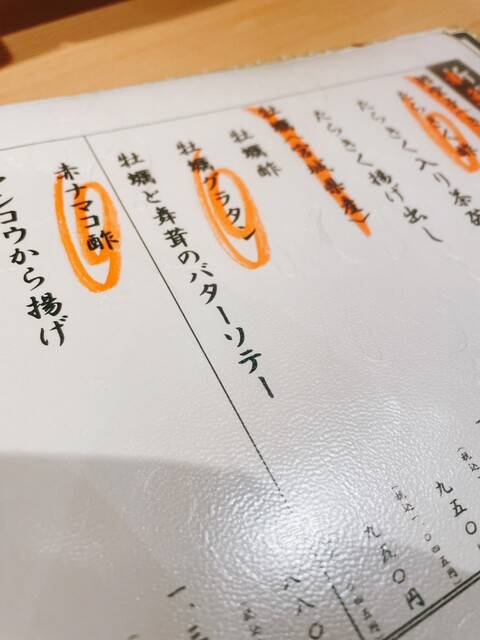 たらきく入り茶碗
たらきく揚げ出し
牡蠣（宮城県産）
牡蠣酢
牡蠣グラタン
牡蠣と舞茸のバターソテー
赤ナマコ酢
アンコウから揚げ
九五〇
（税込一、〇四五円）
九五〇円
八八〇